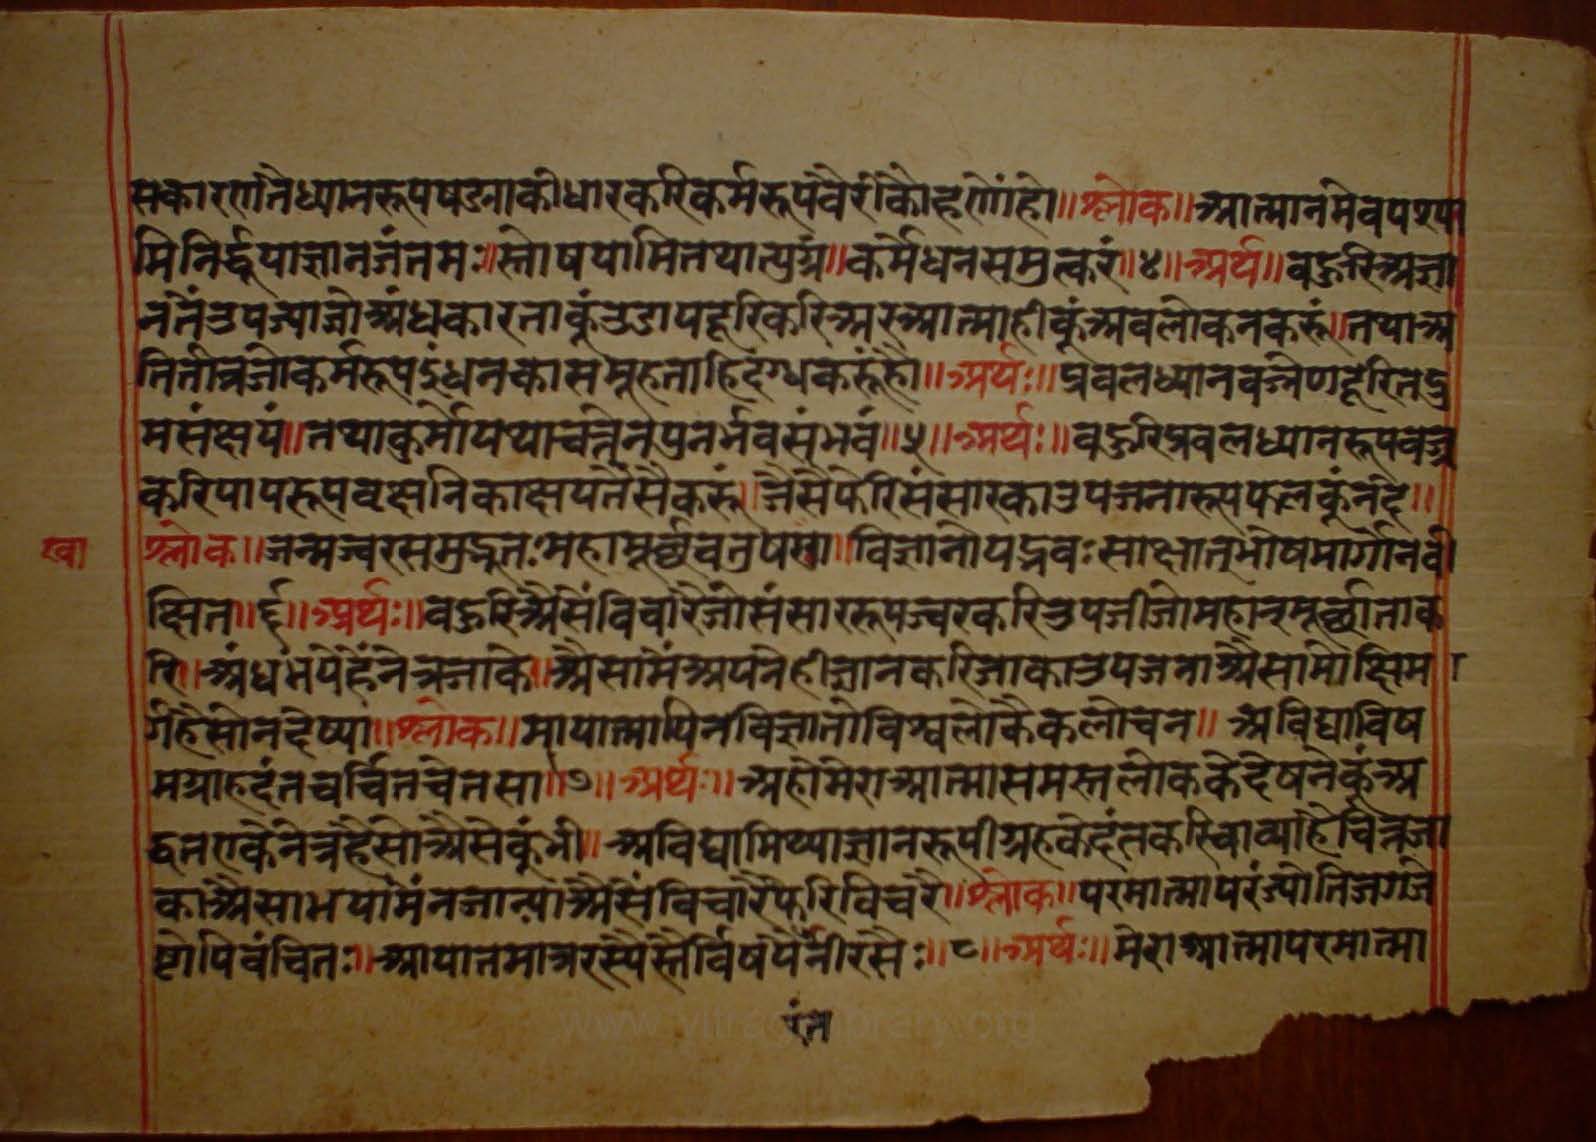 सकारणतैध्यानरूपषड्गकीधारकरिकर्मरूपवैरीकौंहणौंहौं॥श्लोक॥आत्मानमेवपश्या
मिनिर्द्धूयाज्ञानजंतमः॥स्तोषयामितथात्युग्रं॥कर्मेंधनसमुत्करं॥४॥अर्थ॥वहुरिअज्ञा
नतैंउपज्याजोअंधकारताकूंउडायदूरिकरिअरआत्माहीकूंअवलोकनकरूं॥तथाअ
तितीव्रजोकर्मरूपइंधनकासमूहताहिदग्धकरूंहौं॥अर्थः॥प्रवलध्यानवज्रेणदूरितद्रु
मसंक्षयं॥तथाकुर्मोयथाचत्तेनपुनर्भवसंभवं॥५॥अर्थः॥वहुरिप्रवलध्यानरूपवज्र
करिपापरूपवृक्षनिकाक्षयतैसैकरूं॥जैसैफेरिसंसारकाउपजनारूपफलकूंनदे॥
श्लोक॥जन्मज्वरसमुद्भूतःमहामूर्छांधचक्षुषा॥विज्ञानोपद्भवःसाक्षात्मोषमार्गोनवी
षा
क्षित॥६॥अर्थः॥वहुरिअैसैंविचारैजोसंसाररूपज्वरकरिउपजीजोमहान्मूर्छाताक
रि॥अंधभयेहैंनेत्रजाके॥अैसामैंअपनेहीज्ञानकरिजाकाउपजनाअैसामोक्षिमा
र्गहैसोनदेष्या॥श्लोक॥मायात्मापिनविज्ञातोविश्वलोकैकलोचन॥अविद्याविष
मग्राहदंतचर्चितचेतसा॥७॥अर्थः॥अहोमेराआत्मासमस्तलोककेदेषनेकूंअ
द्वतएकनेत्रहैसोअैसेकूंभी॥अविद्यामिथ्याज्ञानरूपीग्रहकेदंतकरिचाव्याहैचित्तजा
काअैसाभयामैंनजान्याअैसैंविचारैफेरिविचरै॥श्लोक॥परमात्मापरंज्योतिजगज्जे
ष्टोपिवंचितः॥आपातमात्ररम्यैस्तैर्विषयैर्नीरसैः॥८॥अर्थः॥मेराआत्मापरमात्मा
रंत
www.vitragvani library.org